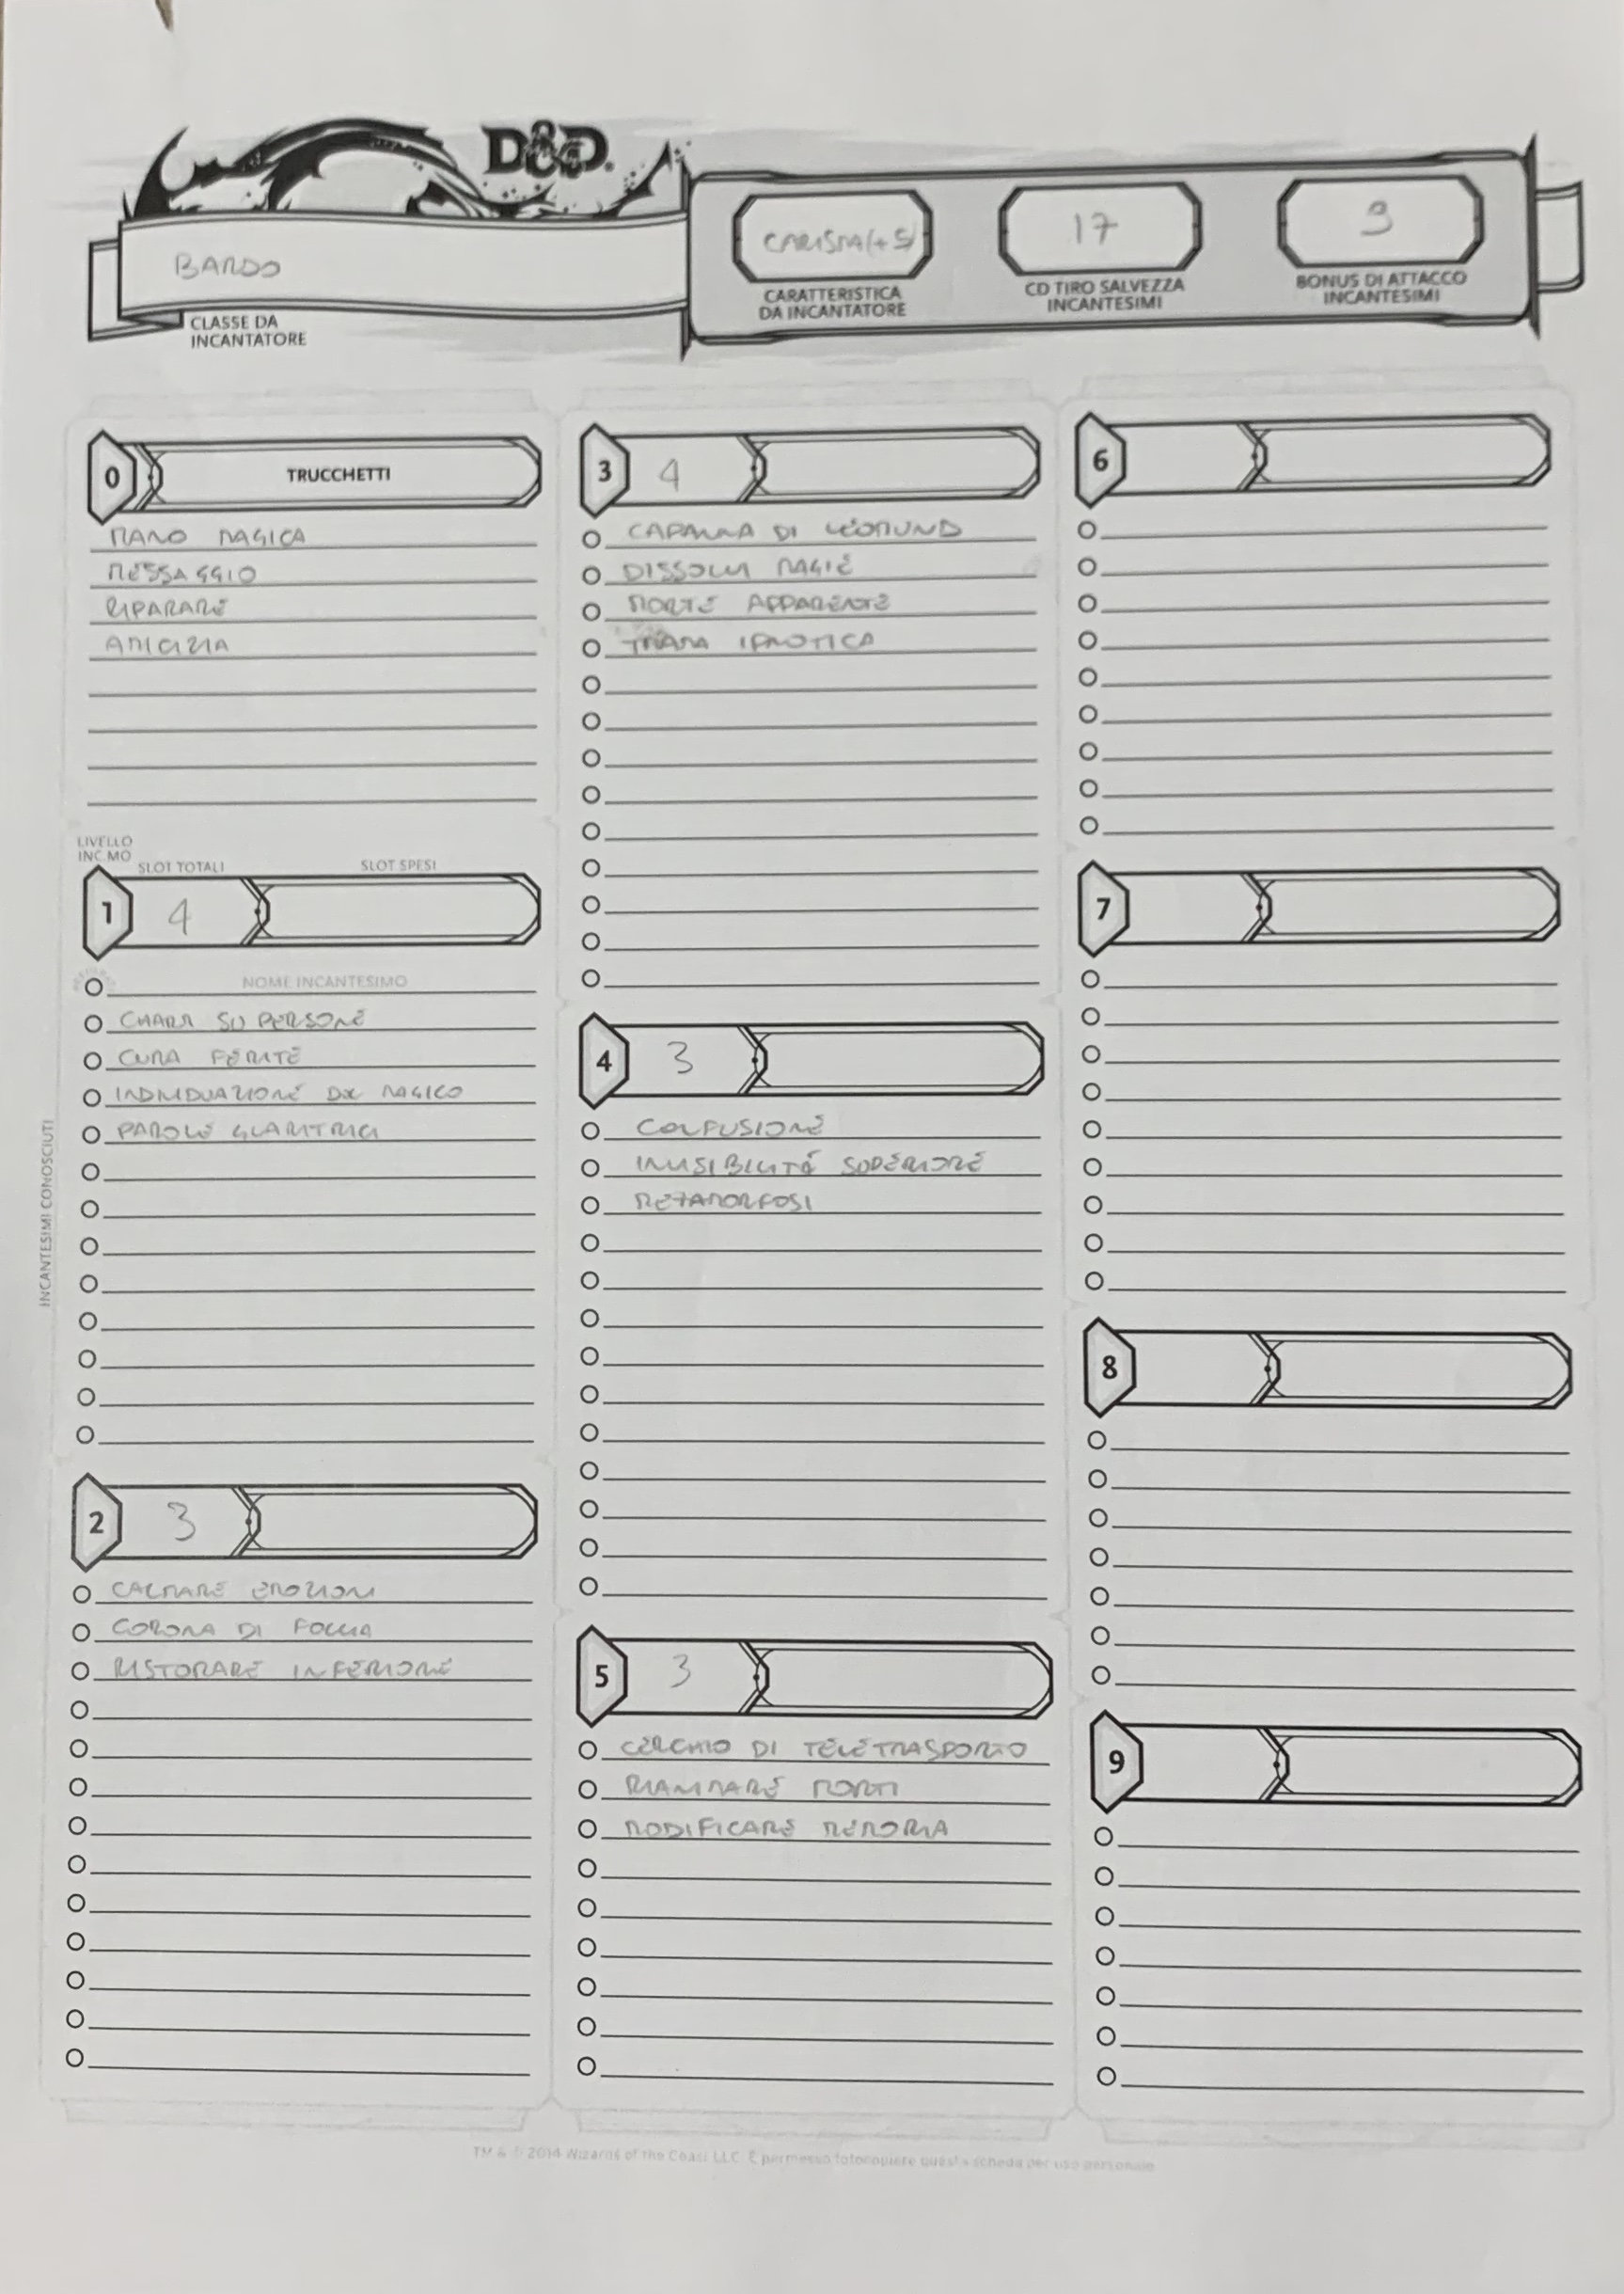 D&D
BARDO
CLASSE DA
INCANTATORE
CARISMA(+5)
CARATTERISTICA
DA INCANTATORE
17
CD TIRO SALVEZZA
INCANTESIMI
9
BONUS DI ATTACCO
INCANTESIMI
0 TRUCCHETTI
MANO MAGICA
MESSAGGIO
RIPARARE
AMICIZIA
LIVELLO
INC.MO
SLOT TOTALI SLOT SPESI
1 4
NOME INCANTESIMO
CHARM SU PERSONE
CURA FERITE
INDIVIDUAZIONE DEL MAGICO
PAROLE GUARITRICI
INCANTESIMI CONOSCIUTI
2 3
CALMARE EMOZIONI
CORONA DI FOLLIA
RISTORARE INFERIORE
3 4
CAPANNA DI LEOMUND
DISSOLVI MAGIE
MORTE APPARENTE
TRAMA IPNOTICA
4 3
CONFUSIONE
INVISIBILITÁ SUPERIORE
METAMORFOSI
5 3
CERCHIO DI TELETRASPORTO
RIANIMARE MORTI
MODIFICARE MEMORIA
6
7
8
9
TM & © 2014 Wizards of the Coast LLC. È permesso fotocopiare questa scheda per uso personale.